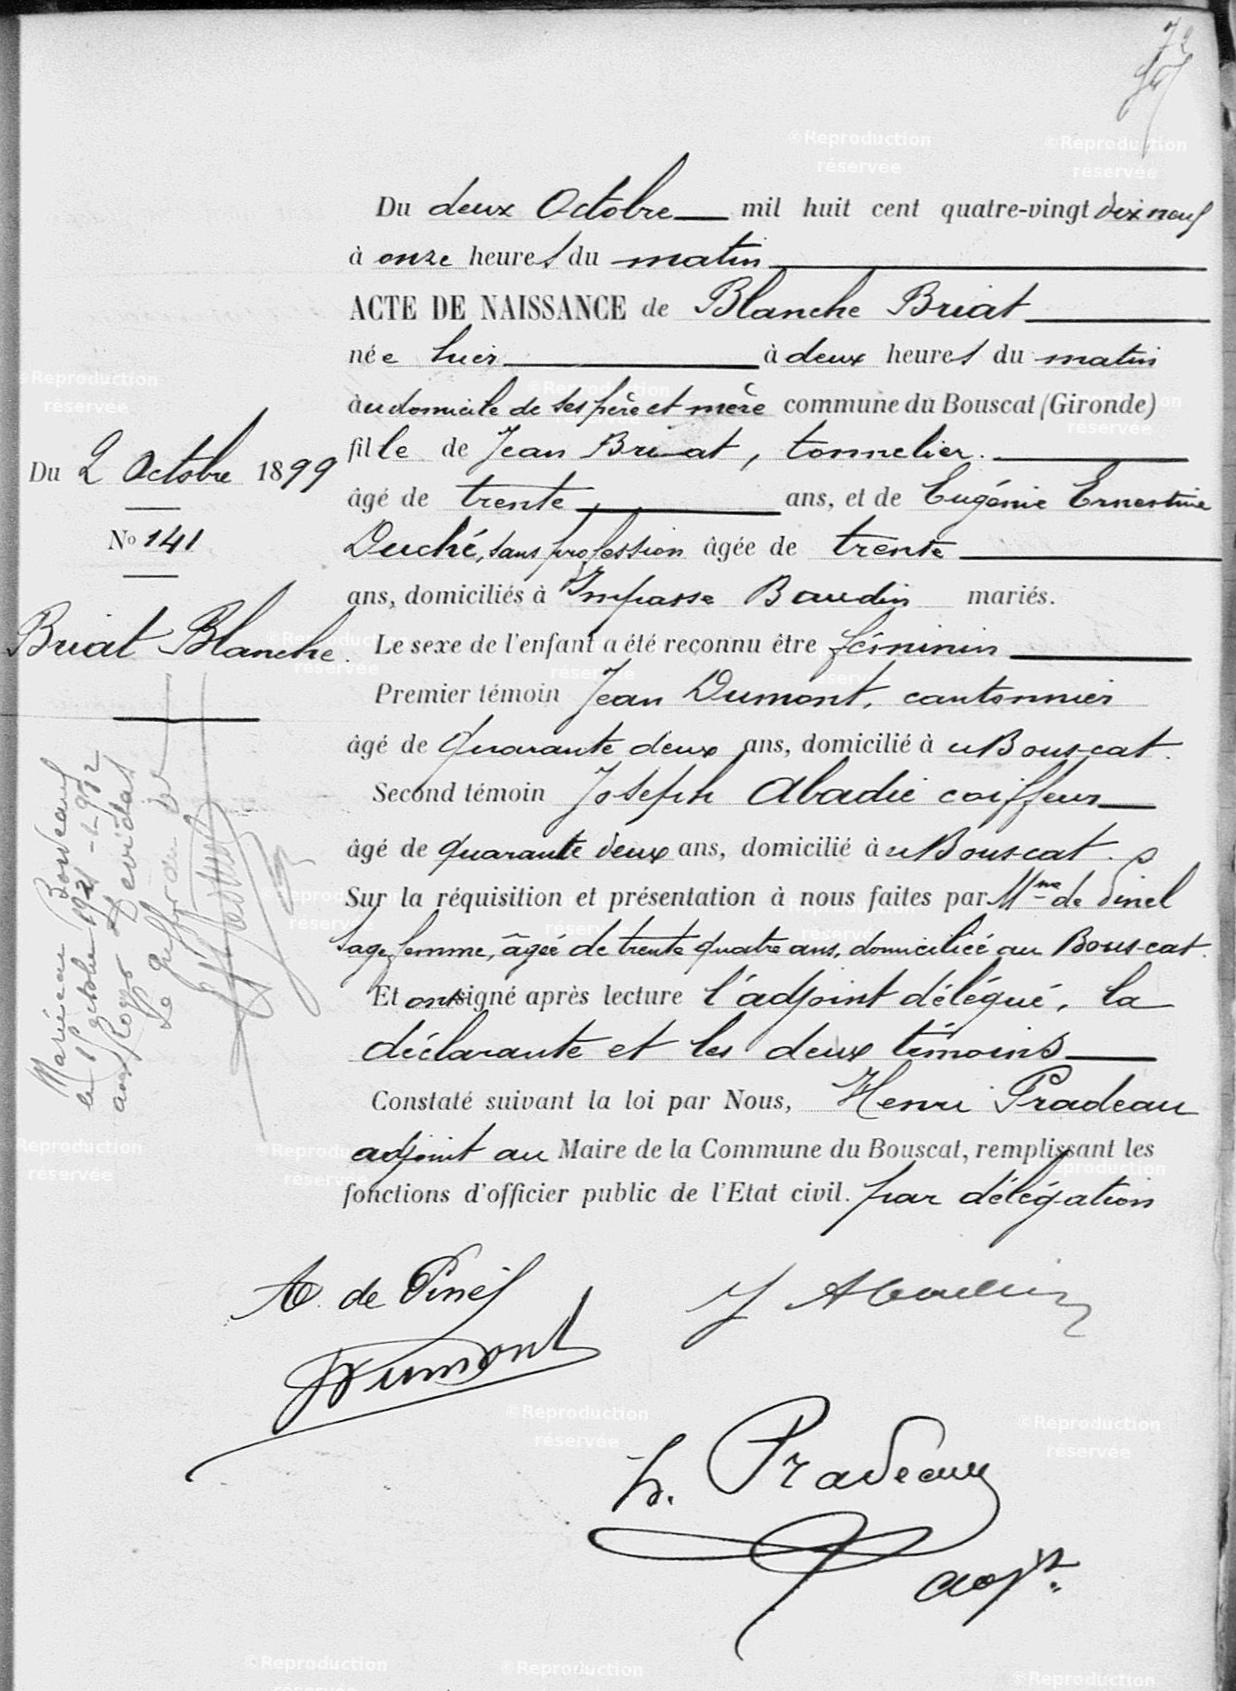 72
Du deux Octobre mil huit cent quatre-vingt dix neuf
à onze heures du matin
ACTE DE NAISSANCE de Blanche Briat
née hier à deux heures du matin
au domicile de ses père et mère commune du Bouscat (Gironde)
fille de Jean Briat, tonnelier.
âgé de trente, ans, et de Eugénie Ernestine
Duché, sans profession âgée de trente
ans, domiciliés à Impasse Baudin mariés.
Le sexe de l'enfant a été reconnu être féminin
Premier témoin Jean Dumont, cantonnier
âgé de quarante deux ans, domicilié à u Bouscat.
Second témoin Joseph Abadie coiffeur
âgé de quarante deux ans, domicilié à u Bouscat.
Sur la réquisition et présentation à nous faites par Mme de Pinel
sage femme, âgée de trente quatre ans, domiciliée au Bouscat.
Et ont signé après lecture l'adjoint délégué, la
déclarante et les deux témoins
Constaté suivant la loi par Nous, Henri Pradeau
adjoint au Maire de la Commune du Bouscat, remplissant les
fonctions d'officier public de l'Etat civil. par délégation
Du 2 Octobre 1899
No 141
Briat Blanche.
Mariée au Bordeaux
le octobre 1921
avec Devidas
Le Greffier
A. de Pinel
J Abadie
JDumont
h. Pradeau
adjt.
©Reproduction
réservée